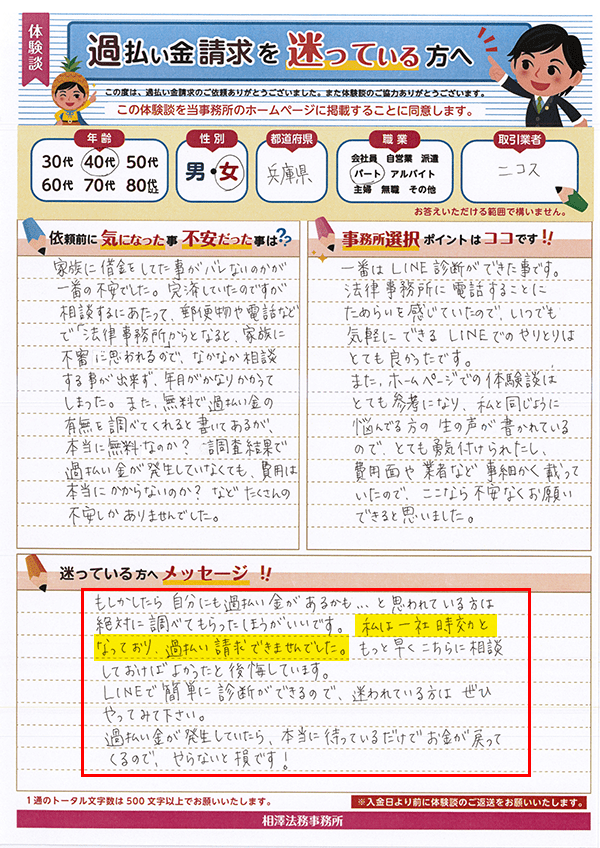 体験談
過払い金請求を迷っている方へ
この度は、過払い金請求のご依頼ありがとうございました。また体験談のご協力ありがとうございます。
この体験談を当事務所のホームページに掲載することに同意します。
年齢
30代 40代 50代
60代 70代 80代以上
性別
男・女
都道府県
兵庫県
職業
会社員 自営業 派遣
パート アルバイト
主婦 無職 その他
取引業者
ニコス
お答えいただける範囲で構いません。
依頼前に気になった事 不安だった事は??
家族に借金をしてた事がバレないのかが
一番の不安でした。完済していたのですが
相談するにあたって、郵便物や電話など
で「法律事務所」からとなると、家族に
不審に思われるので、なかなか相談
する事が出来ず、年月がかなりかかって
しまった。また、無料で過払い金の
有無を調べてくれると書いてあるが、
本当に無料なのか? 調査結果で
過払い金が発生していなくても、費用は
本当にかからないのか? などたくさんの
不安しかありませんでした。
事務所選択ポイントはココです!!
一番はLINE診断ができた事です。
法律事務所に電話することに
ためらいを感じていたので、いつでも
気軽にできるLINEでのやりとりは
とても良かったです。
また、ホームページでの体験談は
とても参考になり、私と同じように
悩んでる方の生の声が書かれている
ので、とても勇気付けられたし、
費用面や業者など事細かく載って
いたので、ここなら不安なくお願い
できると思いました。
迷っている方へメッセージ!!
もしかしたら自分にも過払い金があるかも…と思われている方は
絶対に調べてもらったほうがいいです。私は一社時効と
なっており、過払い請求できませんでした。もっと早くこちらに相談
しておけばよかったと後悔しています。
LINEで簡単に診断ができるので、迷われている方はぜひ
やってみて下さい。
過払い金が発生していたら、本当に待っているだけでお金が戻って
くるので、やらないと損です!
1通のトータル文字数は500文字以上でお願いいたします。
※入金日より前に体験談のご返送をお願いいたします。
相澤法務事務所